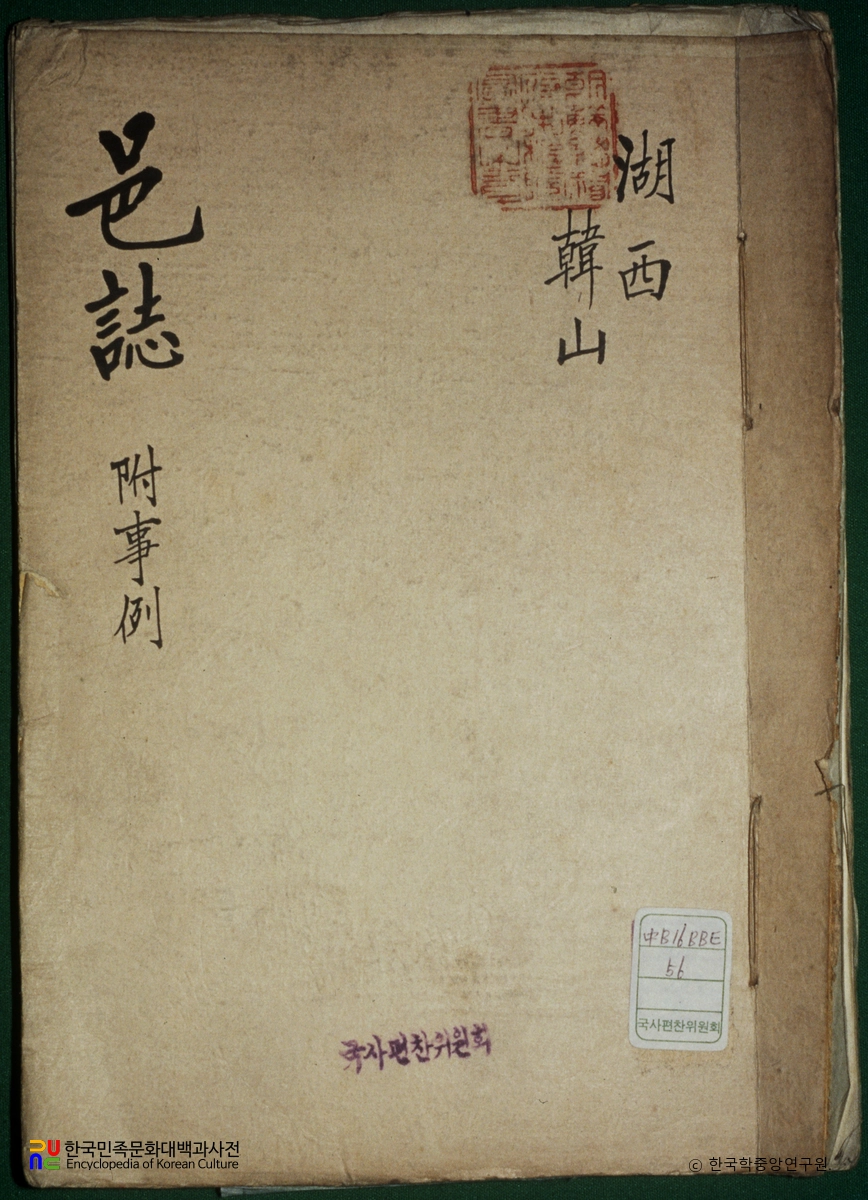 湖西
韓山
邑誌 附事例
中B16BBE
56
국사편찬위원회
국사편찬위원회
한국민족문화대백과사전
Encyclopedia of Korean Culture
© 한국학중앙연구원